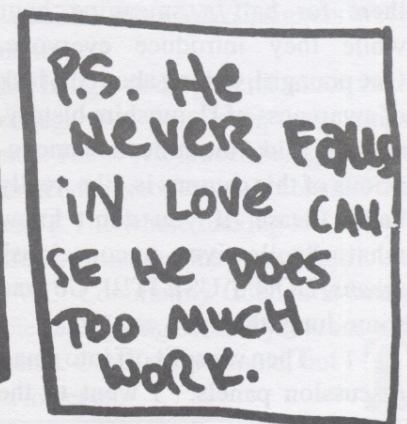 P.S. He
Never Falls
iN Love CAU
SE He Does
TOO MUCH
WORK.